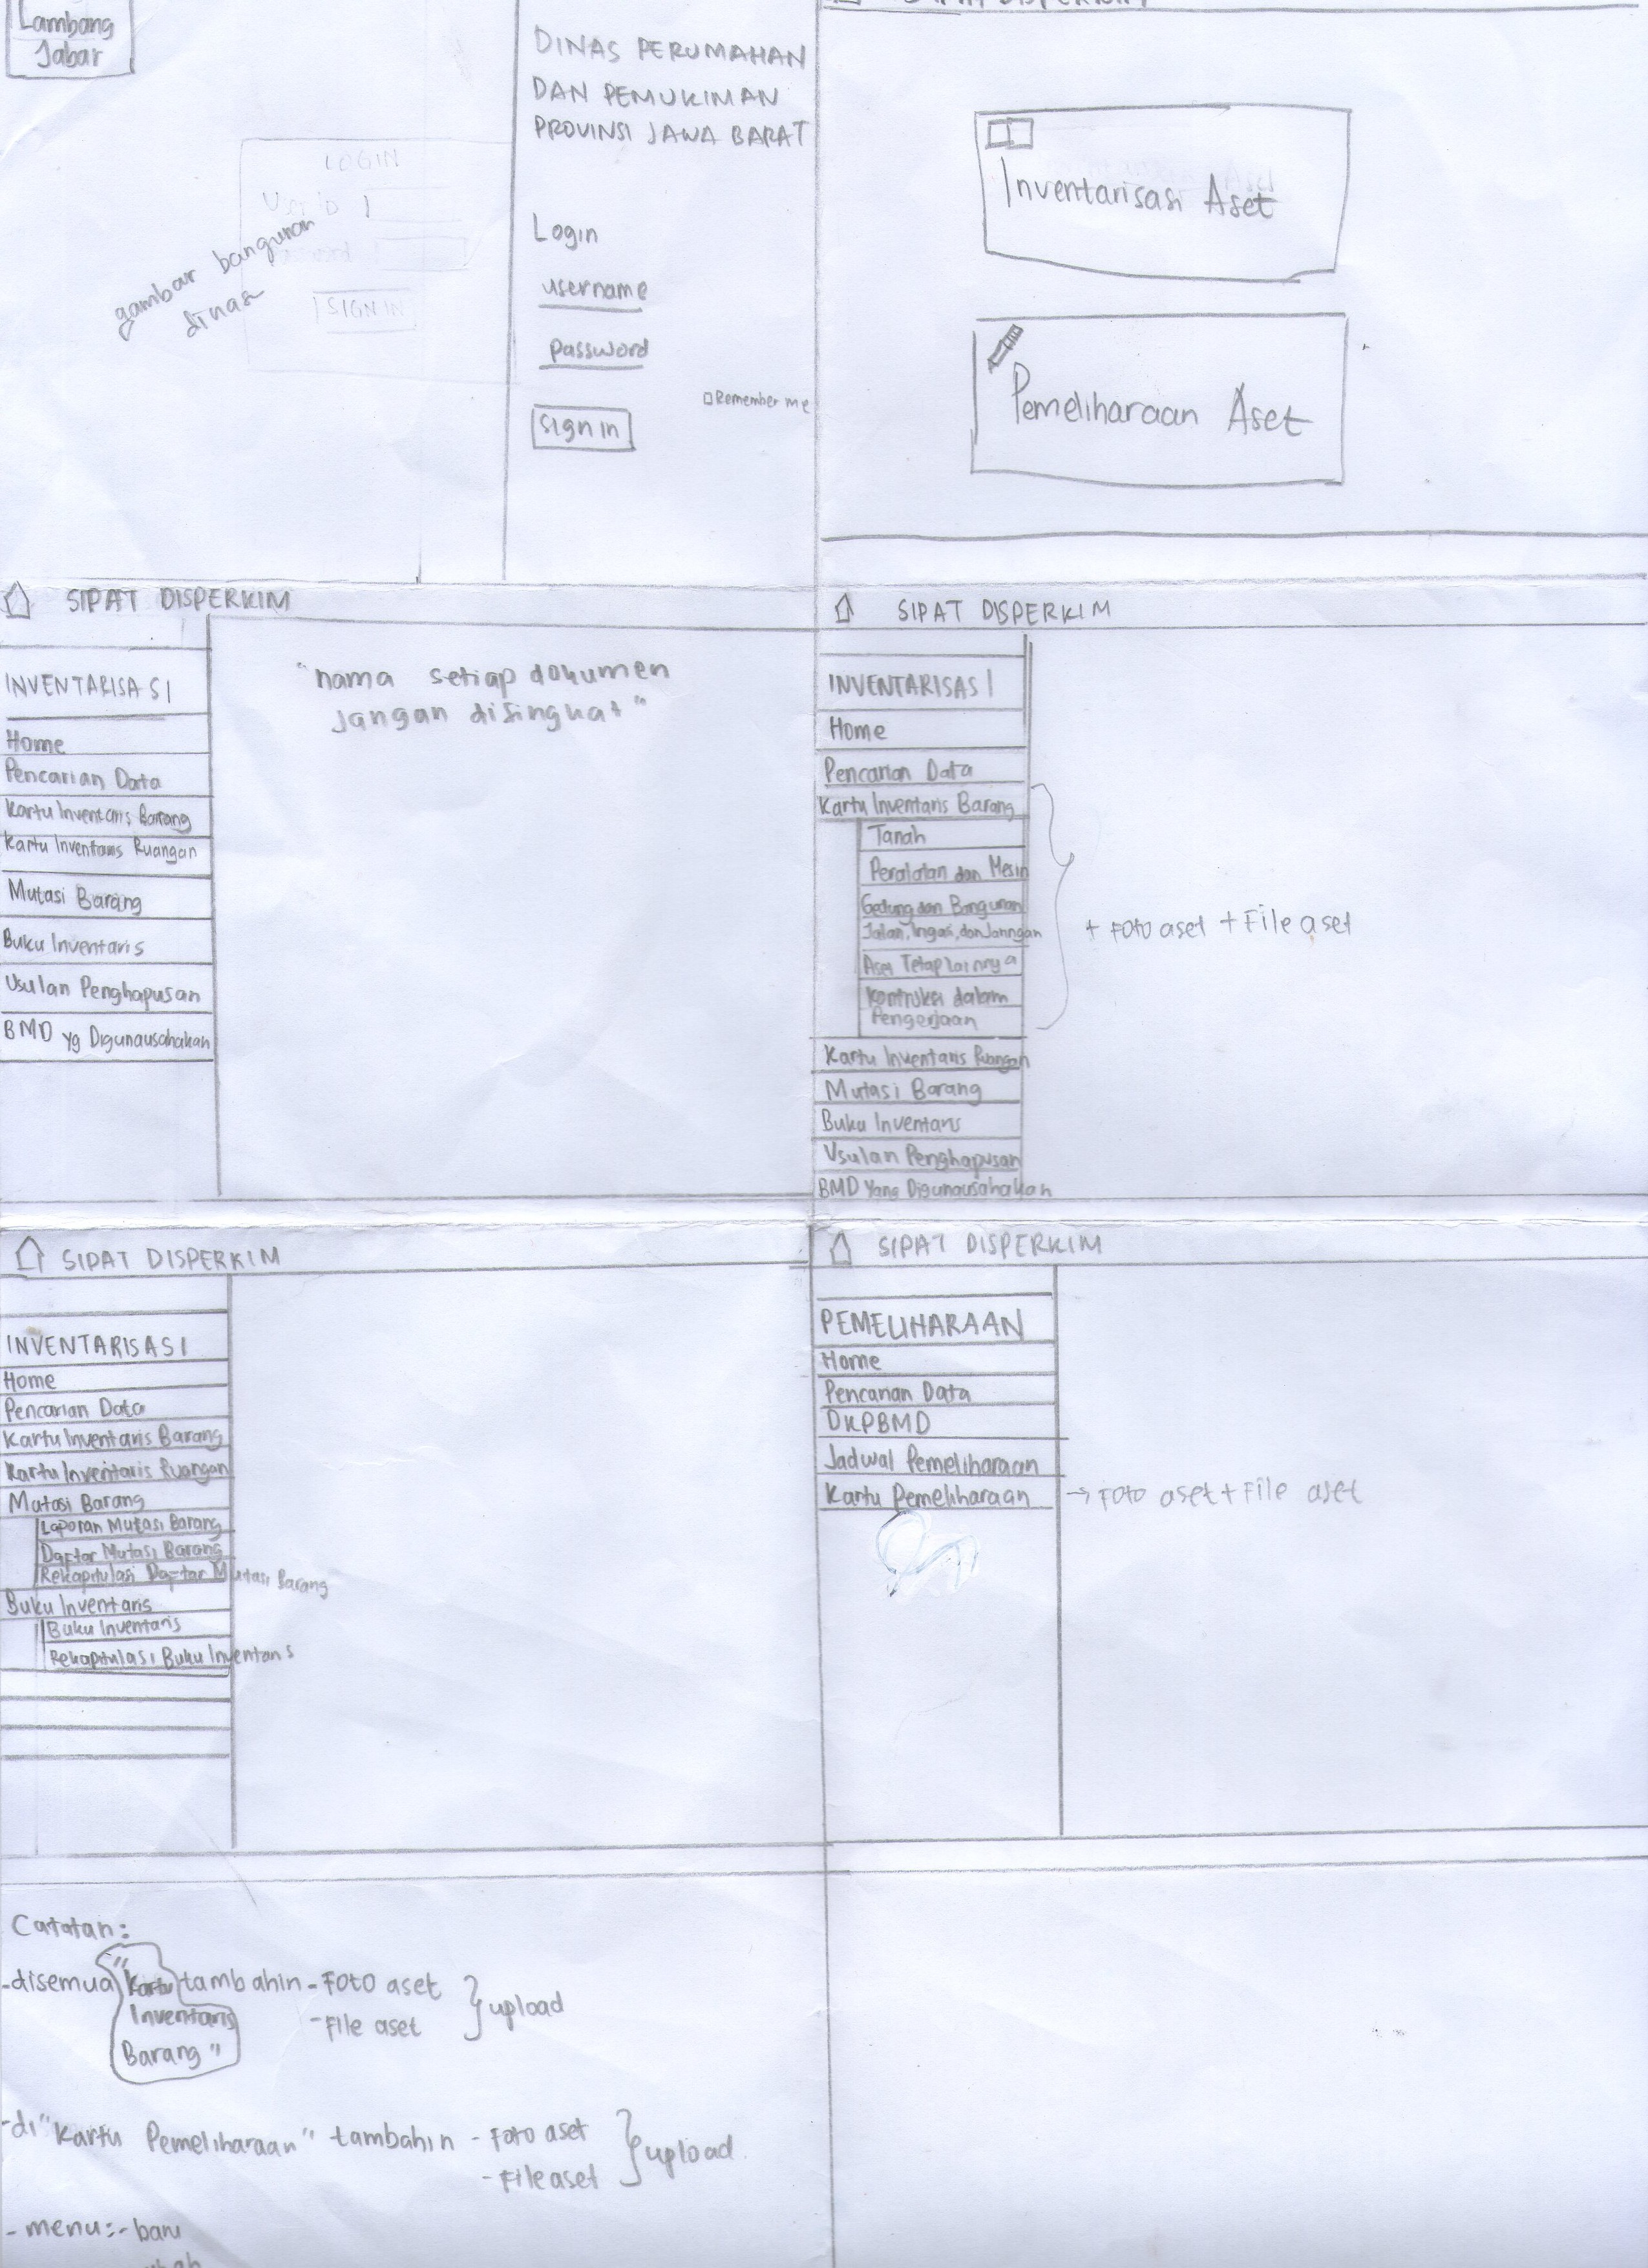 Lambang
Jabar
gambar bangunan
dinas
LOGIN
User ID
Password
SIGN IN
DINAS PERUMAHAN
DAN PEMUKIMAN
PROVINSI JAWA BARAT
Login
username
password
□ Remember me
sign in
SIPAT DISPERKIM
Inventarisasi Aset
Pemeliharaan Aset
SIPAT DISPERKIM
INVENTARISASI
Home
Pencarian Data
Kartu Inventaris Barang
Kartu Inventaris Ruangan
Mutasi Barang
Buku Inventaris
Usulan Penghapusan
BMD yg Digunausahakan
"nama setiap dokumen
jangan disingkat"
SIPAT DISPERKIM
INVENTARISASI
Home
Pencarian Data
Kartu Inventaris Barang
Tanah
Peralatan dan Mesin
Gedung dan Bangunan
Jalan, Irigasi, dan Jaringan
Aset Tetap lainnya
Kontruksi dalam
Pengerjaan
+ Foto aset + File aset
Kartu Inventaris Ruangan
Mutasi Barang
Buku Inventaris
Usulan Penghapusan
BMD Yang Digunausahakan
SIPAT DISPERKIM
INVENTARISASI
Home
Pencarian Data
Kartu Inventaris Barang
Kartu Inventaris Ruangan
Mutasi Barang
Laporan Mutasi Barang
Daftar Mutasi Barang
Rekapitulasi Daftar Mutasi Barang
Buku Inventaris
Buku Inventaris
Rekapitulasi Buku Inventaris
SIPAT DISPERKIM
PEMELIHARAAN
Home
Pencarian Data
DKPBMD
Jadwal Pemeliharaan
Kartu Pemeliharaan → Foto aset + File aset
Catatan:
- disemua "Kartu tambahin - Foto aset
Inventaris - File aset } upload
Barang"
- di "Kartu Pemeliharaan" tambahin - Foto aset
- File aset } upload
- menu: - baru